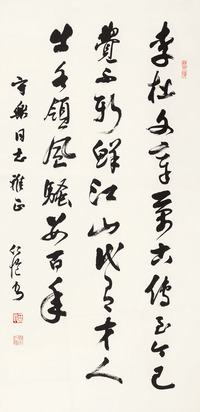 李杜文章萬古傳至今已
覺不新鮮江山代有才人
出各領風騷數百年
同志雅正
仁愷書